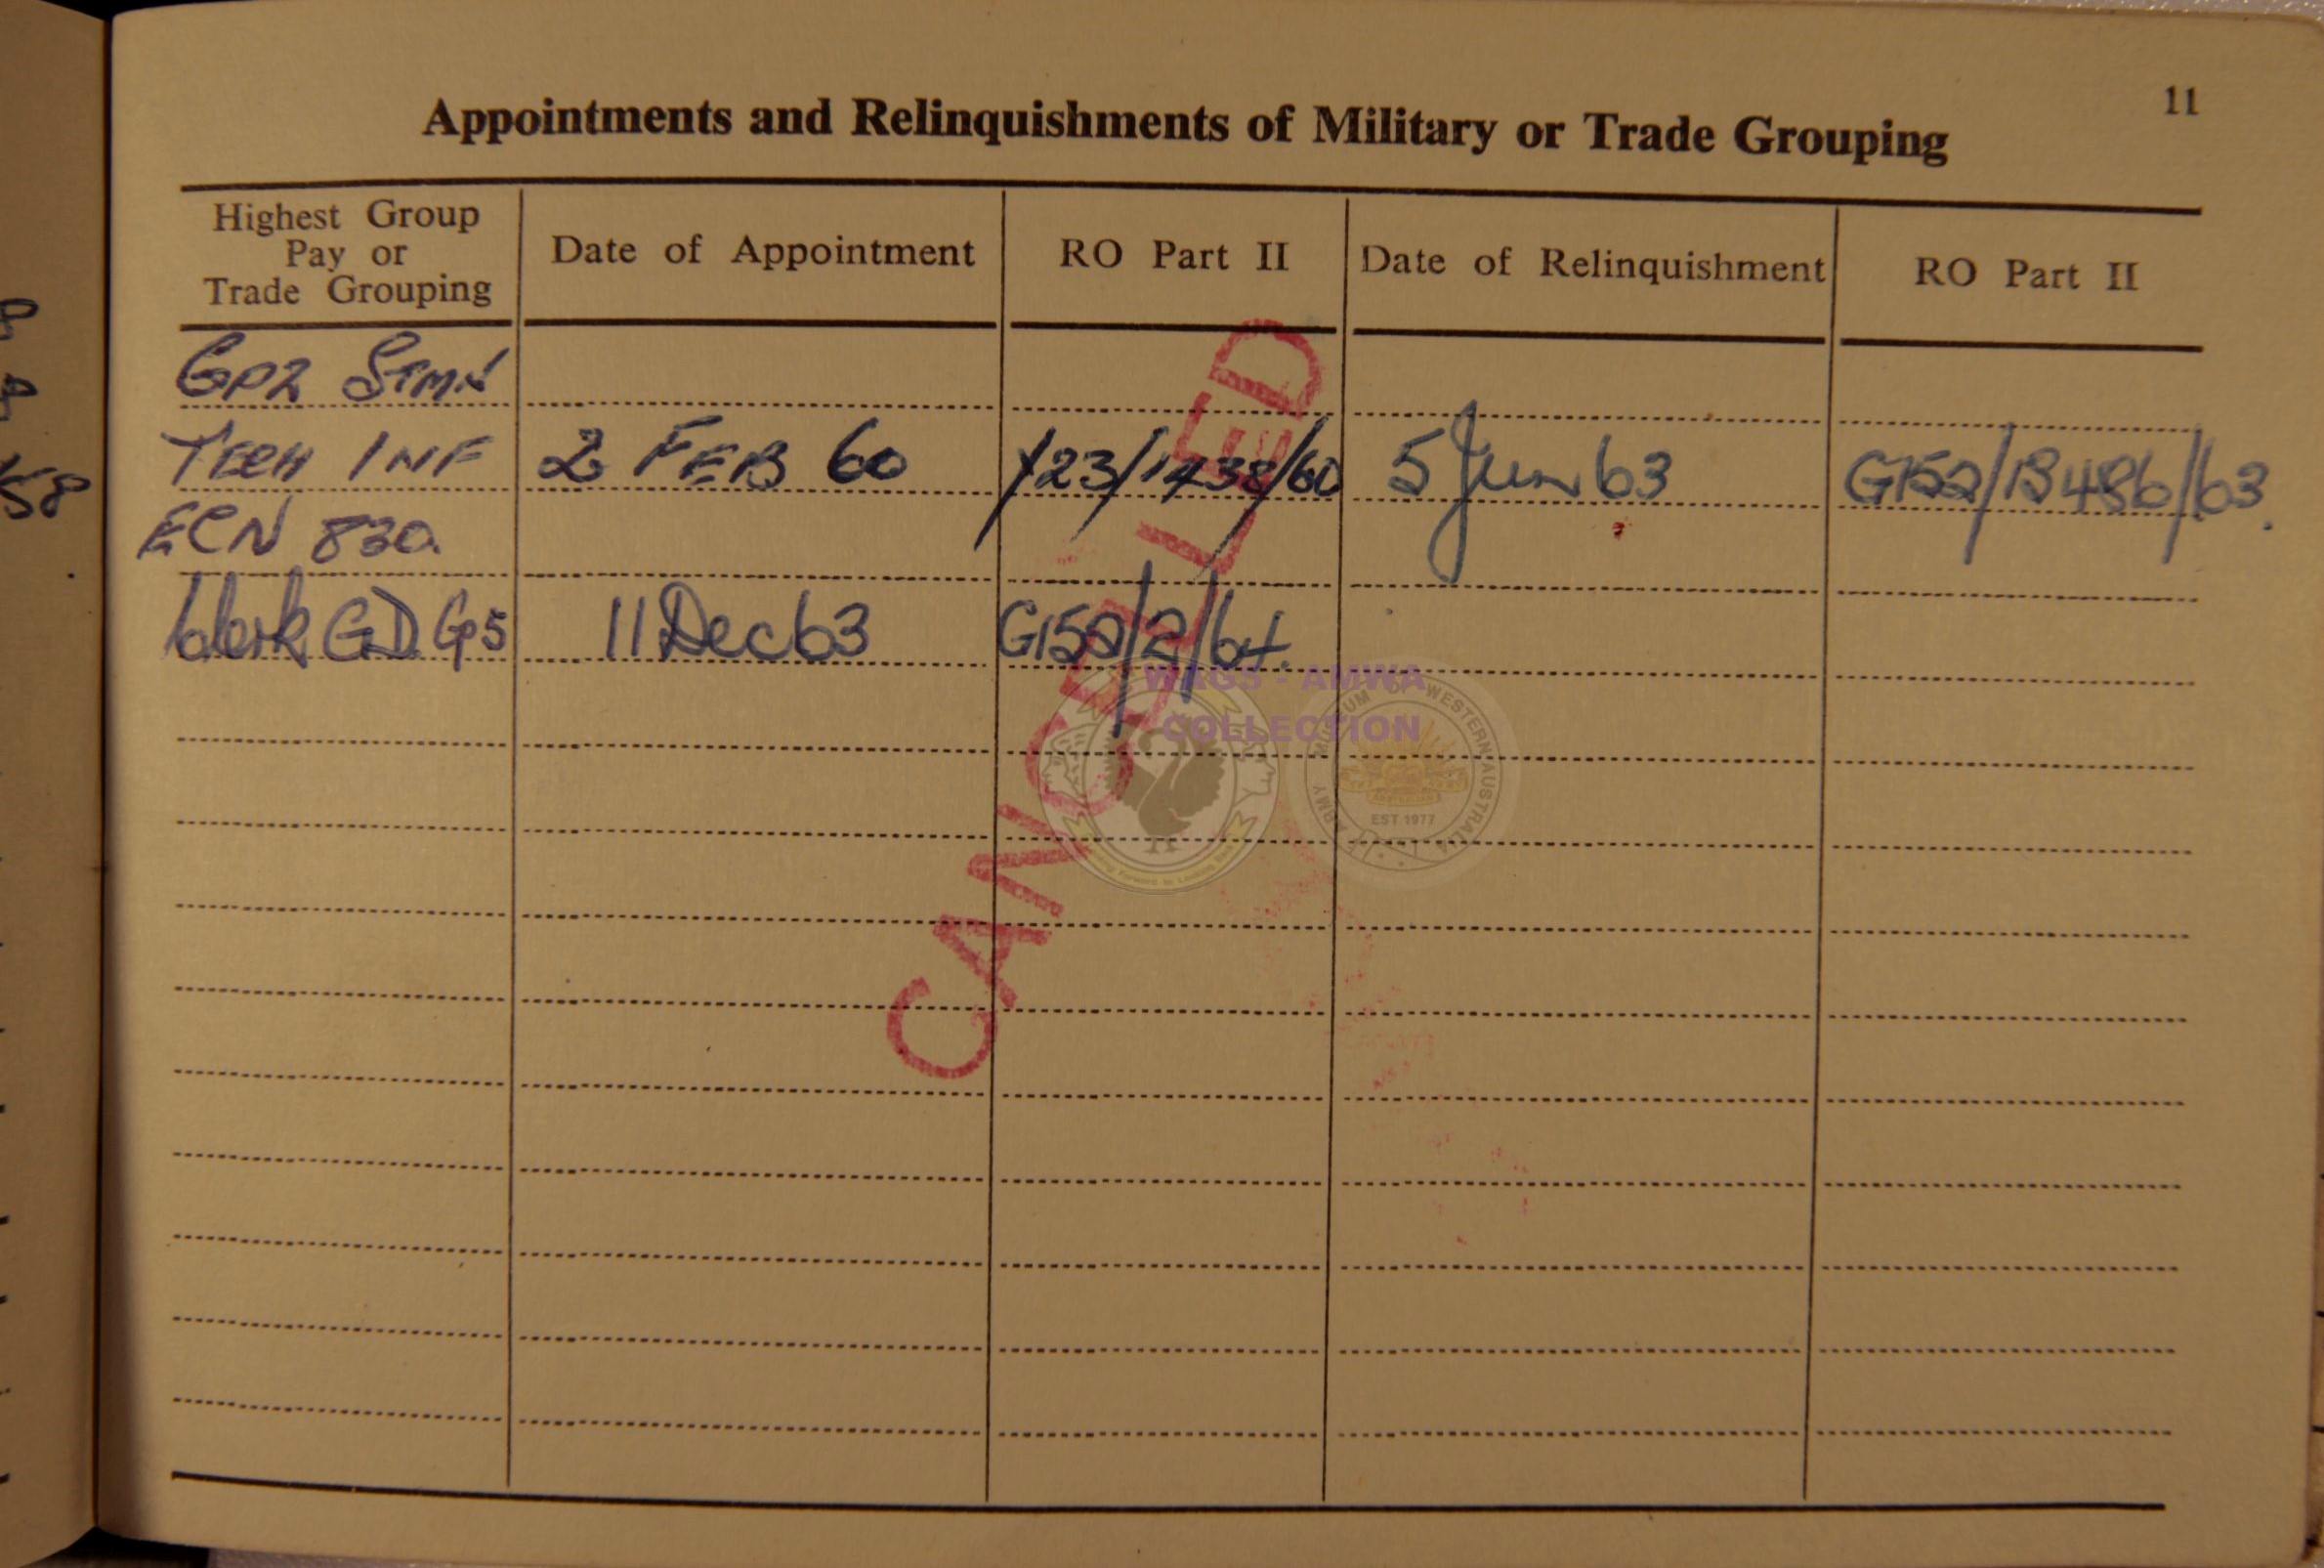 11
Appointments and Relinquishments of Military or Trade Grouping
Highest Group
Pay or
Trade Grouping
Date of Appointment
RO Part II
Date of Relinquishment
RO Part II
GP2 STMN
TECH INF 2 FEB 60 /1438/60 5 Jun 63 G152/13486/63.
ECN 830.
Clerk GD Gp5 11 Dec 63 G152/2/64.
CANCELLED
WAGS - AMWA
COLLECTION
ARMY MUSEUM OF WESTERN AUSTRALIA
EST 1977
58